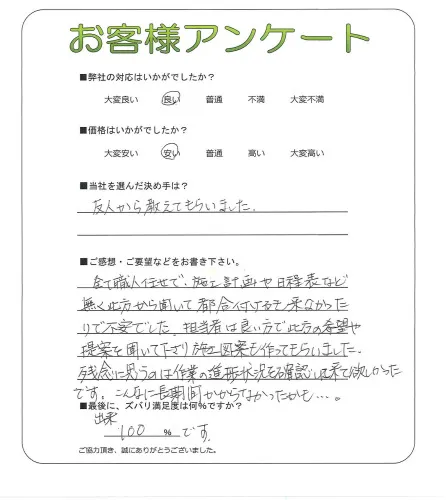 お客様アンケート
■弊社の対応はいかがでしたか？
大変良い 良い 普通 不満 大変不満
■価格はいかがでしたか？
大変安い 安い 普通 高い 大変高い
■当社を選んだ決め手は？
友人から教えてもらいました。
■ご感想・ご要望などをお書き下さい。
全て職人任せで、施工計画や日程表など
無く此方から聞いて都合付けるも来なかった
りで不安でした。担当者は良い方で此方の希望や
提案を聞いて下さり施工図案も作ってもらいました。
残念に思うのは作業の進捗状況を確認しに来て欲しかった
です。こんなに長期間かからなかったかも…。
■最後に、ズバリ満足度は何%ですか？
出来
100 %です。
ご協力頂き、誠にありがとうございました。